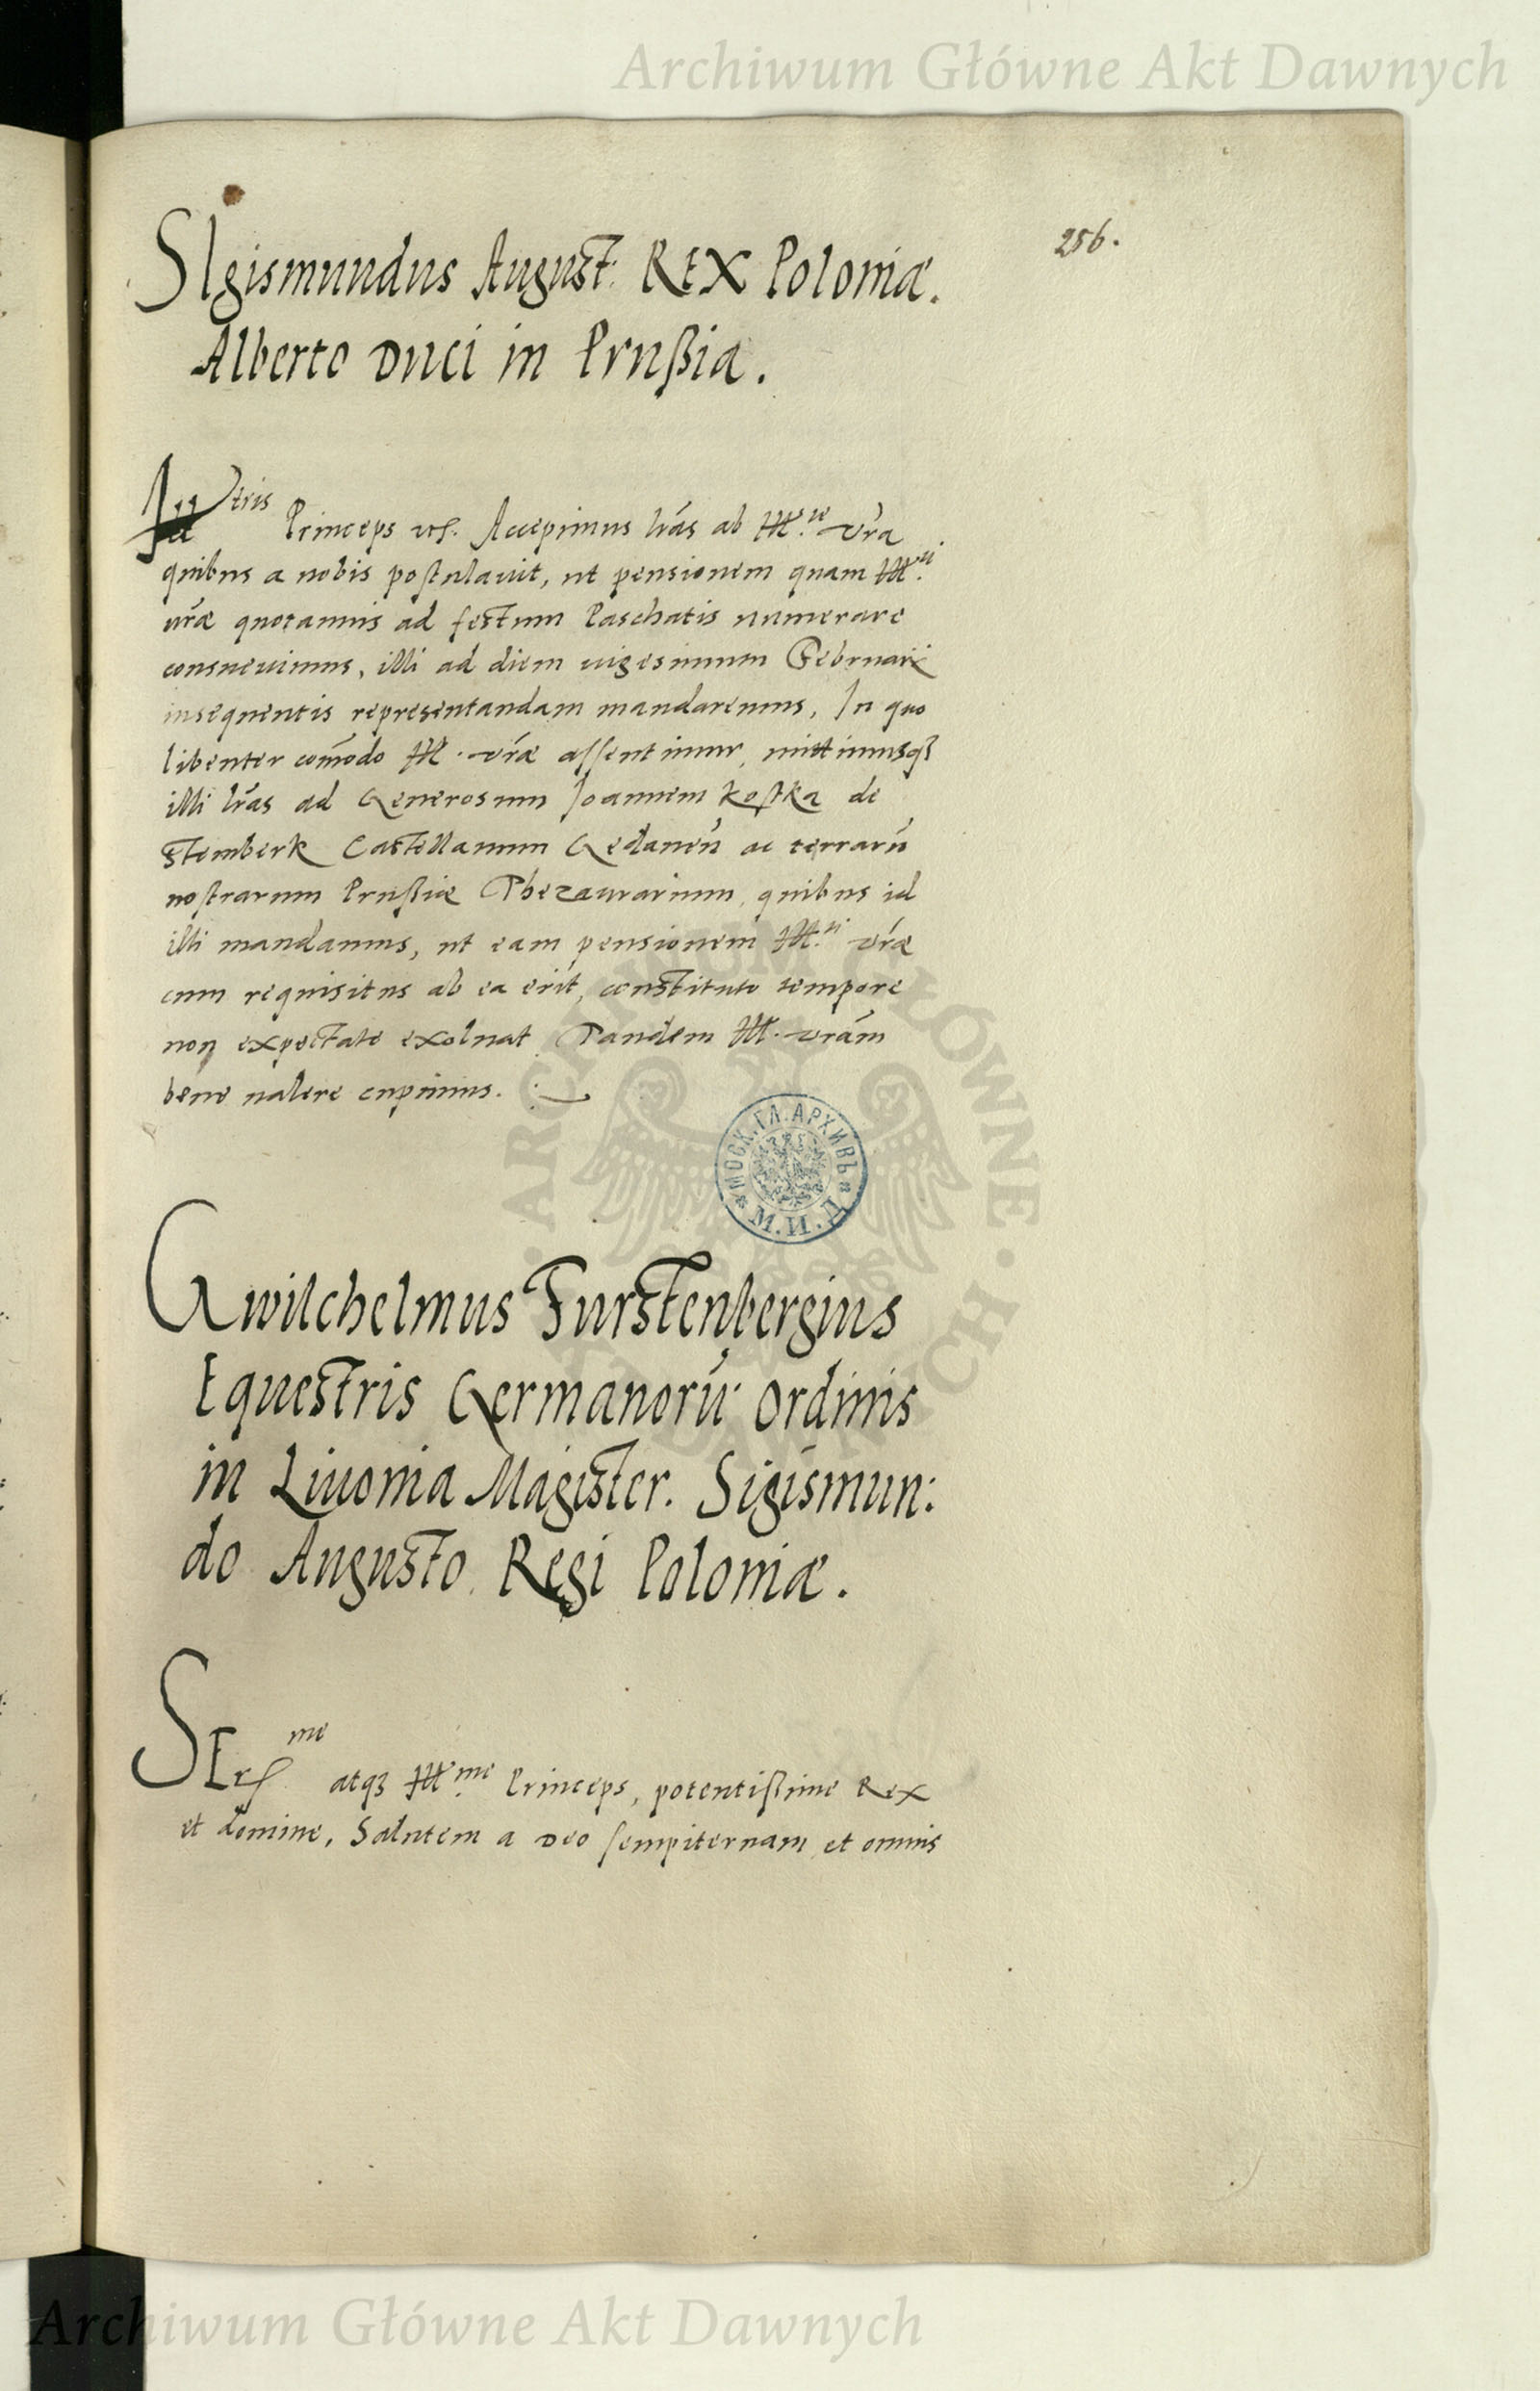 Archiwum Główne Akt Dawnych
256.
SIgismundus August: REX Poloniæ.
Alberto Duci in Prußia.
Illtris Princeps etc. Accepimus lrás ab Ill.te vrá
quibus a nobis postulauit, ut pensionem quam Ill.ti
uræ quotannis ad festum Paschatis numerare
consueuimus, illi ad diem uigesimum Februarij
insequentis representandam mandaremus, In quo
libenter com̃odo Ill. vræ assentimur, mittimusqʒ
illi lrás ad Generosum Joannem Kostka de
Stemberk Castellanum Gedaneñ ac terrarũ
nostrarum Prußiæ Thezaurarium, quibus id
illi mandamus, ut eam pensionem Ill.ti vræ
cum requisitus ab ea erit, constituto tempore
non expectato exoluat. Tandem Ill. vrám
bene ualere cupimus.
ARCHIWUM GŁÓWNE AKT DAWNYCH
МОСК. ГЛ. АРХИВЪ М. И. Д.
Gwilchelmus Furstenbergius
Equestris Germanorũ Ordinis
in Liuonia Magister. Sigismun:
do Augusto Regi Poloniæ.
SErme atqʒ Ill.me Princeps, potentißime Rex
et domine, Salutem a Deo sempiternam et omnis
Archiwum Główne Akt Dawnych